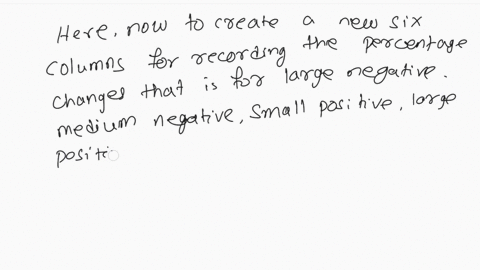 Here, now to create a new six
columns for recording the percentage
changes that is for large negative.
medium negative, small positive, large
positi